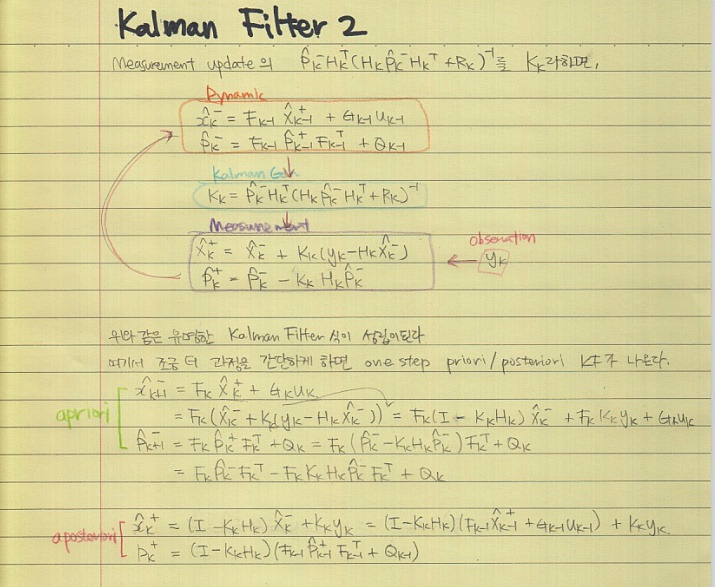 Kalman Filter 2
Measurement update의 P̂ₖ⁻Hₖᵀ(HₖP̂ₖ⁻Hₖᵀ+Rₖ)⁻¹를 Kₖ라하면,
Dynamic
x̂ₖ⁻ = Fₖ₋₁ x̂ₖ₋₁⁺ + Gₖ₋₁uₖ₋₁
P̂ₖ⁻ = Fₖ₋₁ P̂ₖ₋₁⁺ Fₖ₋₁ᵀ + Qₖ₋₁
Kalman
Kₖ = P̂ₖ⁻Hₖᵀ(HₖP̂ₖ⁻Hₖᵀ+Rₖ)⁻¹
Measurement
x̂ₖ⁺ = x̂ₖ⁻ + Kₖ(yₖ-Hₖx̂ₖ⁻)
P̂ₖ⁺ = P̂ₖ⁻ - KₖHₖP̂ₖ⁻
observation
yₖ
위와 같은 유명한 Kalman Filter 식이 성립이된다
여기서 조금 더 과정을 간단하게 하면 one step priori/posteriori KF가 나온다.
apriori
x̂ₖ₊₁⁻ = Fₖ x̂ₖ⁺ + Gₖuₖ
= Fₖ(x̂ₖ⁻ + Kₖ(yₖ-Hₖx̂ₖ⁻)) = Fₖ(I - KₖHₖ) x̂ₖ⁻ + FₖKₖyₖ + Gₖuₖ
P̂ₖ₊₁⁻ = Fₖ P̂ₖ⁺ Fₖᵀ + Qₖ = Fₖ(P̂ₖ⁻ - KₖHₖP̂ₖ⁻)Fₖᵀ + Qₖ
= FₖP̂ₖ⁻Fₖᵀ - FₖKₖHₖP̂ₖ⁻Fₖᵀ + Qₖ
aposteriori
x̂ₖ⁺ = (I - KₖHₖ) x̂ₖ⁻ + Kₖyₖ = (I-KₖHₖ)(Fₖ₋₁x̂ₖ₋₁⁺ + Gₖ₋₁uₖ₋₁) + Kₖyₖ
Pₖ⁺ = (I-KₖHₖ)(Fₖ₋₁P̂ₖ₋₁⁺Fₖ₋₁ᵀ + Qₖ₋₁)